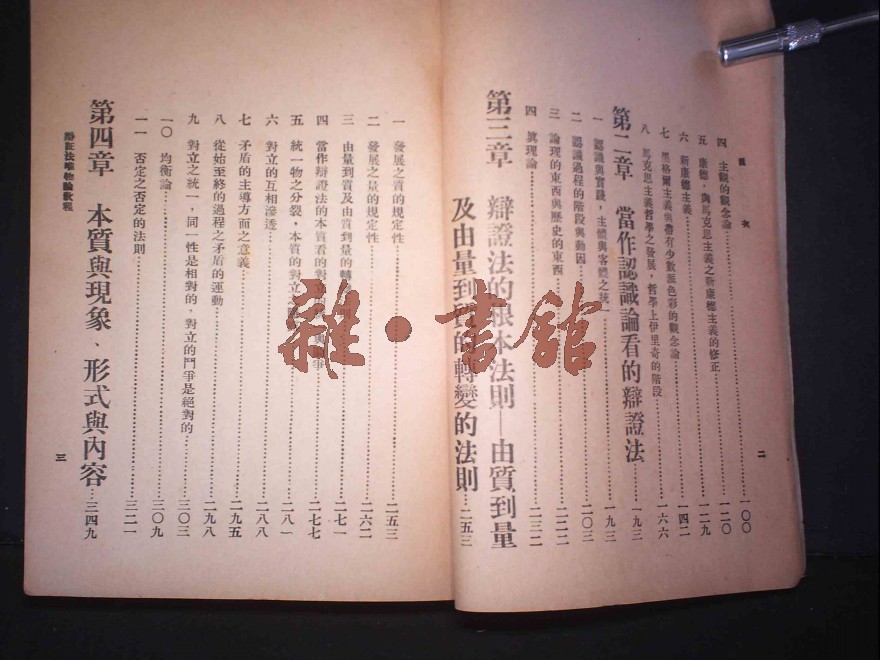 目次
二
四 主觀的觀念論……一〇〇
五 康德，與馬克思主義之新康德主義的修正……一二〇
六 新康德主義……一二九
七 黑格爾主義與帶有少數派色彩的觀念論……一四二
八 馬克思主義哲學之發展，哲學上伊里奇的階段……一六六
第二章 當作認識論看的辯證法……一九三
一 認識與實踐，主體與客體之統一……一九三
二 認識過程的階段與動因……二〇三
三 論理的東西與歷史的東西……二二二
四 眞理論……二三二
第三章 辯證法的根本法則—由質到量
及由量到質的轉變的法則……二五三
一 發展之質的規定性……二五三
二 發展之量的規定性……二六二
三 由量到質及由質到量的轉……二七一
四 當作辯證法的本質看的對……爭……二七七
五 統一物之分裂，本質的對立之……二八一
六 對立的互相滲透……二八八
七 矛盾的主導方面之意義……二九五
八 從始至終的過程之矛盾的運動……二九八
九 對立之統一，同一性是相對的，對立的鬥爭是絕對的……三〇三
一〇 均衡論……三〇九
一一 否定之否定的法則……三二一
第四章 本質與現象、形式與內容……三四九
辯証法唯物論敎程
三
雜·書館